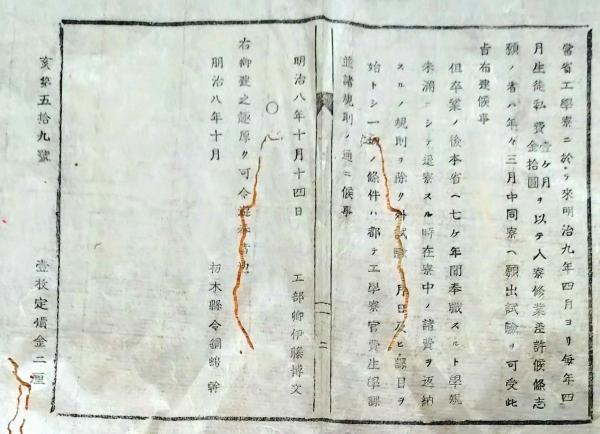 當省工學寮ニ於テ來明治九年四月ヨリ毎年四
月生徒私費壹ヶ月金拾圓ヲ以テ入寮修業差許候條志
願ノ者ハ年々三月中同寮ヘ願出試驗ヲ可受此
旨布達候事
但卒業ノ後本省ヘ七ケ年間奉職スルト學規
未満ニシテ退寮スル時在寮中ノ諸費ヲ返納
スルノ規則ヲ除ク外試驗ノ月日及ヒ課目ヲ
始トシ一切ノ條件ハ都テ工學寮官費生學課
並諸規則ノ通ニ候事
明治八年十月十四日 工部卿伊藤博文
○
右御達之趣厚ク可令
明治八年十月 栃木縣令鍋島幹
一 二
亥第五拾九號 壹枚定價金二厘